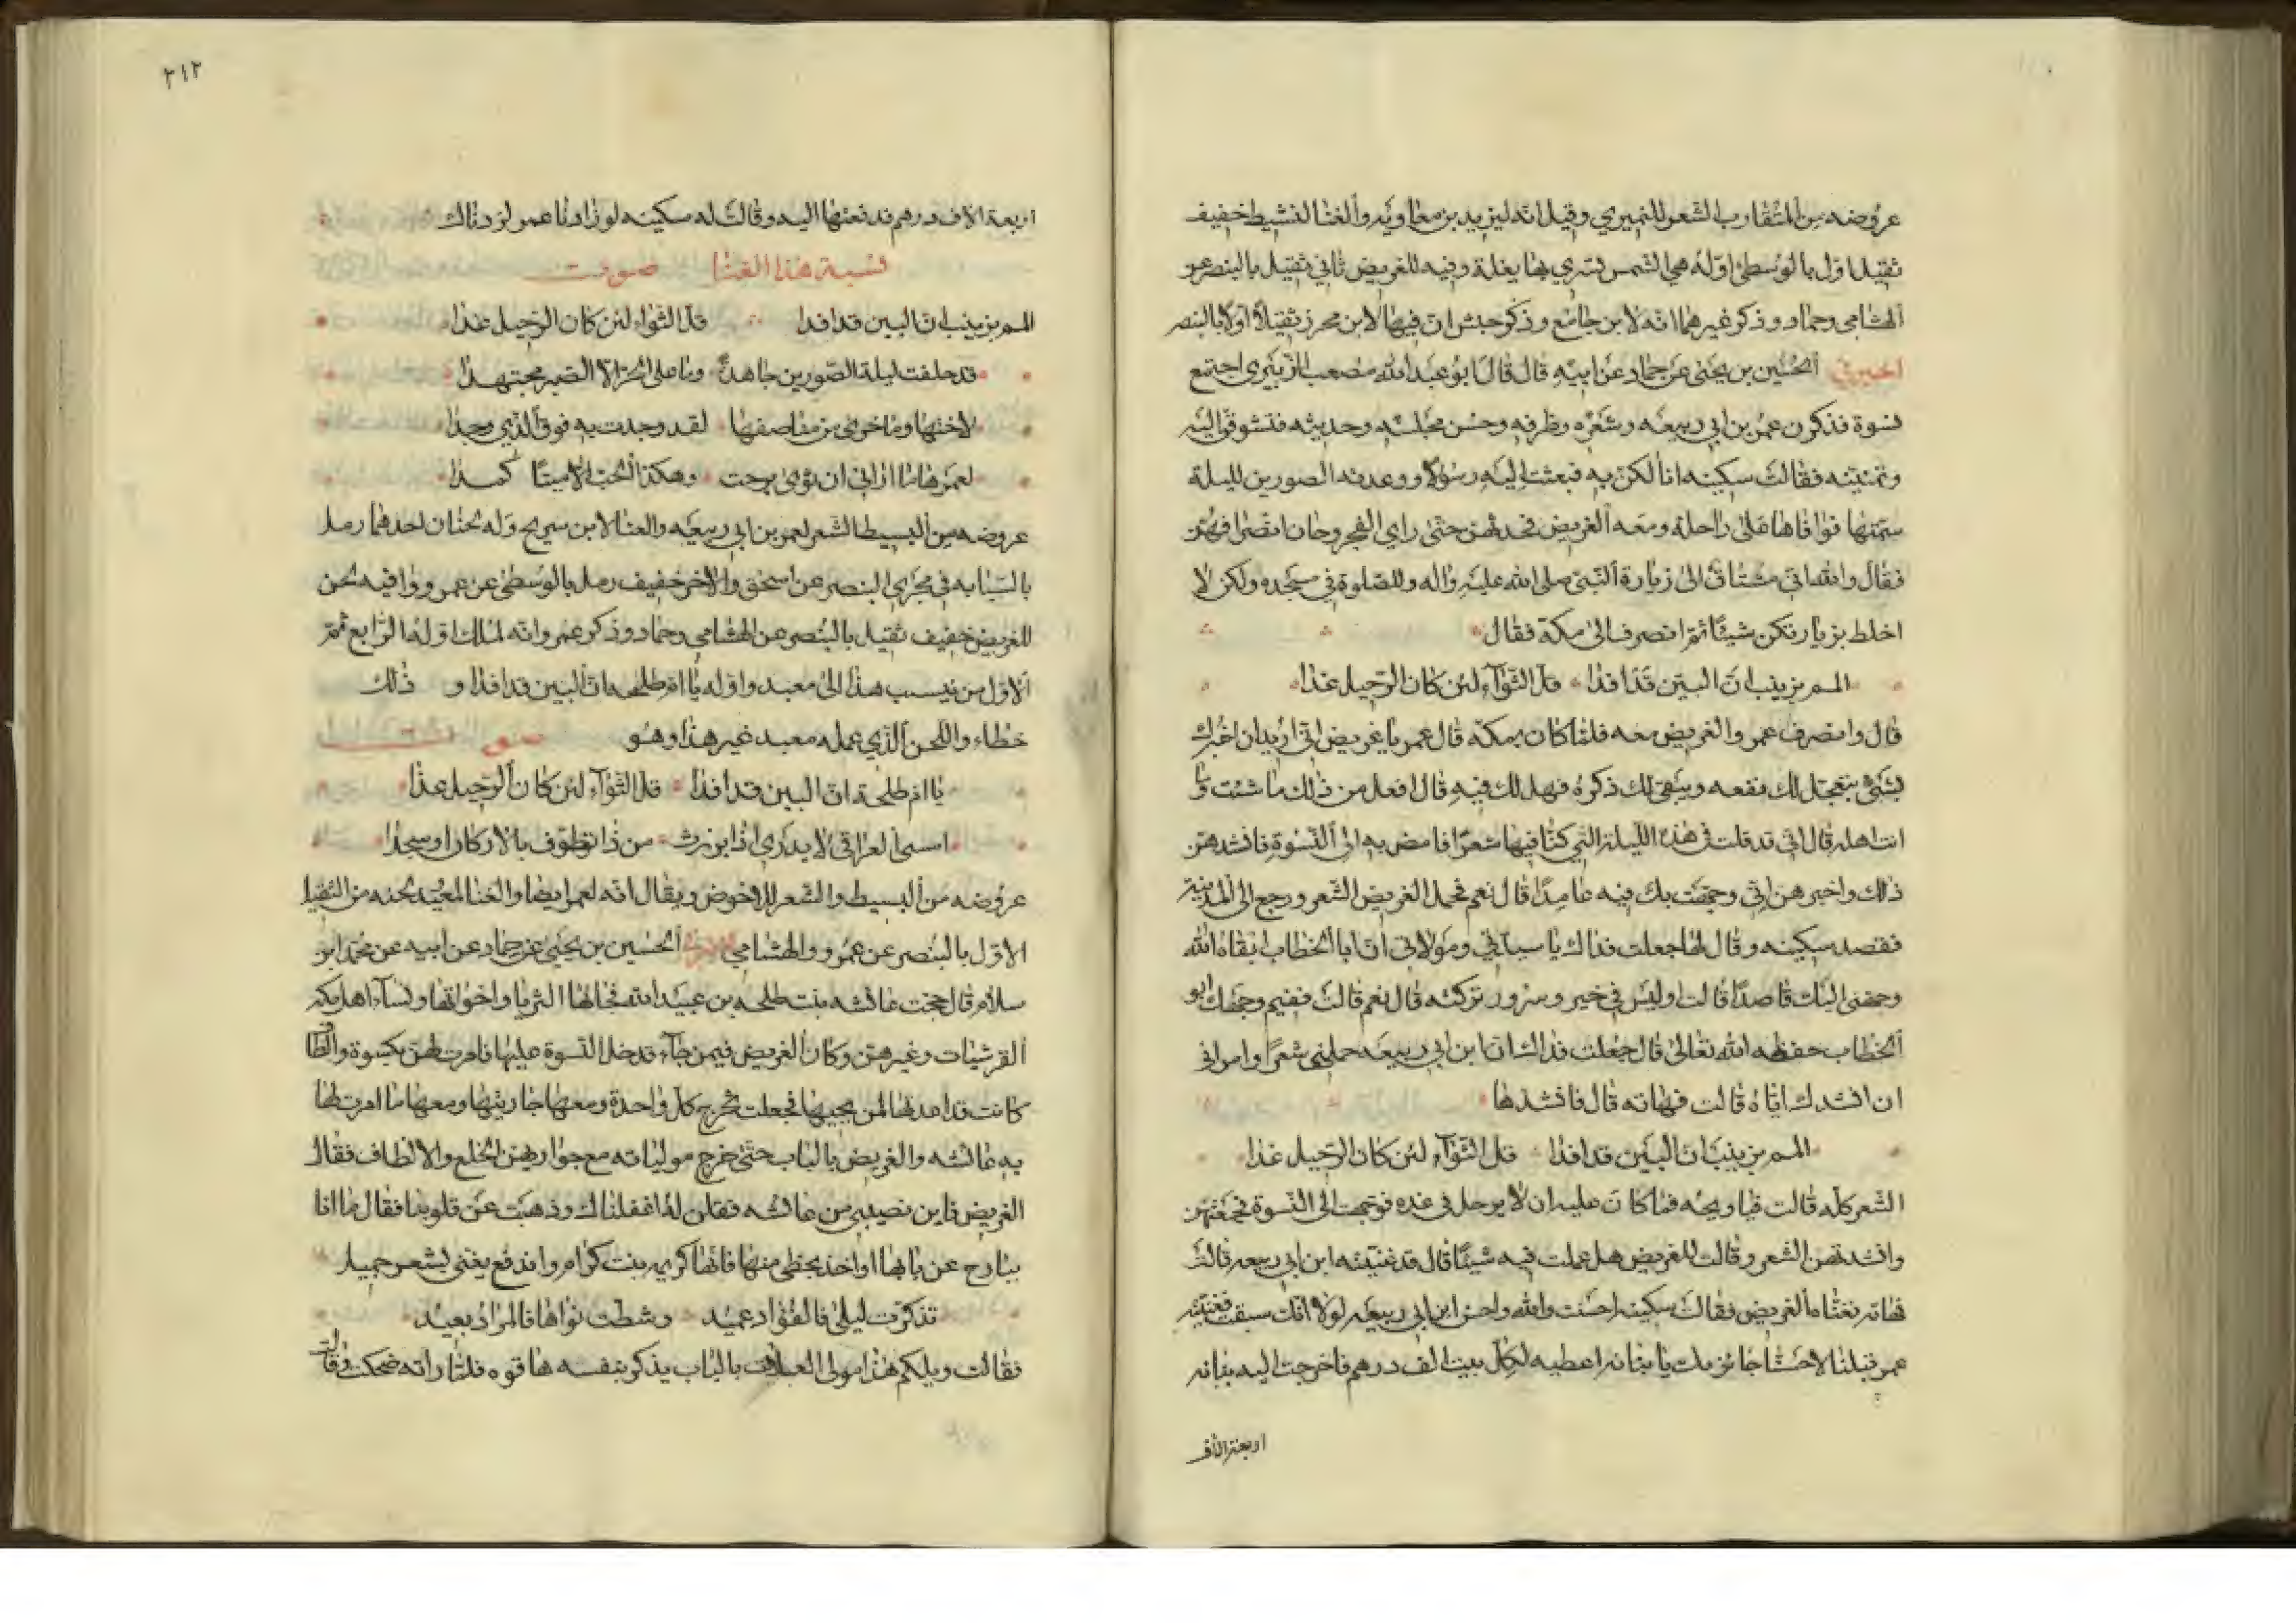 عروضه من المتقارب الشعر للنميري وقيل انه ليزيد بن معاويه والغنا للنشيط خفيف
ثقيل اول بالوسطى اوله هي الشمس تسري بها بغلة وفيه للغريض ثاني ثقيل بالبنصر عن
الهشامي وحماد وذكر غيرهما انه لابن جامع وذكر حبش ان فيها لابن محرز ثقيلا اولا بالبنصر
اخبرني الحسين بن يحيى عن حماد عن ابيه قال قال ابو عبد الله مصعب الزبيري اجتمع
نسوة فذكرن عمر بن ابي ربيعه وشعره وظرفه وحسن مجلسه وحديثه فتشوقن اليه
وتمنينه فقالت سكينه انا لكن به فبعثت اليه رسولا ووعدته الصورين لليلة
سمتها فوافاها على راحلته ومعه الغريض فحدثهن حتى راي الفجر وحان انصرافهن
فقال والله اني مشتاق الى زيارة النبي صلى الله عليه واله وللصلوة في مسجده ولكن لا
اخلط بزيارتكن شيئا ثم انصرف الى مكة فقال
المم بزينب ان البين قد افدا قل الثوآء لئن كان الرحيل غدا
قال وانصرف عمر والغريض معه فلما كان بمكة قال عمر يا غريض اني اريد ان اخبرك
بشئ يتعجل لك نفعه ويبقى لك ذكره فهل لك فيه قال افعل من ذلك ما شئت وما
انت اهله قال اني قد قلت في هذه الليلة التي كنا فيها شعرا فامض به الى النسوة فانشدهن
ذلك واخبرهن اني وجهت بك فيه عامدا قال نعم فحمل الغريض الشعر ورجع الى المدينة
فقصد سكينه وقال لها جعلت فداك يا سيدتي ومولاتي ان ابا الخطاب ابقاه الله
وجهني اليك قاصدا قالت اوليس في خير وسرور تركته قال نعم قالت ففيم وجهك ابو
الخطاب حفظه الله تعالى قال جعلت فداك ان ابن ابي ربيعه حملني شعرا وامرني
ان انشدك اياه قالت فهاته قال فانشدها
المم بزينب ان البين قد افدا قل الثوآء لئن كان الرحيل غدا
الشعر كله قالت فيا ويحه فما كان عليه ان لا يرحل في غده فوجهت الى النسوة فجمعتهن
وانشدتهن الشعر وقالت للغريض هل عملت فيه شيئا قال قد غنيته ابن ابي ربيعه قالت
فهاته فغناه الغريض فقالت سكينه احسنت والله واحسن ابن ابي ربيعه لولا انك سبقت فغنيته
عمر قبلنا لاحسنا جائزتك يا بنانه اعطيه لكل بيت الف درهم فاخرجت اليه بنانه
اربعة الاف
٣١٢
اربعة الاف درهم فدفعتها اليه وقالت له سكينه لو زادنا عمر لزدناك
نسبة هذا الغنا صوت
المم بزينب ان البين قد افدا قل الثواء لئن كان الرحيل غدا
قد حلفت ليلة الصورين جاهدة وما على الحر الا الصبر مجتهدا
لاختها ولاخرى من مناصفها لقد وجدت به فوق الذي وجدا
لعمرها ما اراني ان نوى برحت وهكذا الحب الا ميتا كمدا
عروضه من البسيط الشعر لعمر بن ابي ربيعه والغنا لابن سريج وله لحنان احدهما رمل
بالسبابه في مجرى البنصر عن اسحق والاخر خفيف رمل بالوسطى عن عمرو وفيه لحن
للغريض خفيف ثقيل بالبنصر عن الهشامي وحماد وذكر عمرو انه لمالك اوله الرابع ثم
الاول من ينسب هذا الى معبد واوله يا ام طلحه ان البين قد افدا وذلك
خطاء واللحن الذي عمله معبد غير هذا وهو صوت
يا ام طلحة ان البين قد افدا قل الثوآء لئن كان الرحيل غدا
امسى العراقي لا يدري اذا برزت من ذا تطوف بالاركان او سجدا
عروضه من البسيط والشعر للاخوص ويقال انه لعمر ايضا والغنا لمعبد لحنه من الثقيل
الاول بالبنصر عن عمرو والهشامي اخبرني الحسين بن يحيى عن حماد عن ابيه عن محمد ابن
سلام قال حجت عائشه بنت طلحه بن عبيد الله فجاتها الثريا واخواتها ونسآء اهل مكه
القرشيات وغيرهن وكان الغريض فيمن جآء فدخل النسوة عليها فامرت لهن بكسوة والطاف
كانت قد اعدتها لمن يجيها فجعلت تخرج كل واحدة ومعها جاريتها ومعها ما امرت لها
به عائشه والغريض بالباب حتى خرج مولياته مع جواريهن الخلع والالطاف فقال
الغريض فاين نصيبي من عائشه فقلن له اغفلناك وذهبت عن قلوبنا فقال ما انا
ببارح عن بابها او اخذ بحظي منها فانها كريمه بنت كرام واندفع يغني بشعر جميل
تذكرت ليلى فالفؤاد عميد وشطت نواها فالمزار بعيد
فقالت ويلكم هذا مولى العبلات بالباب يذكر بنفسه هاتوه فلما راته ضحكت وقالت